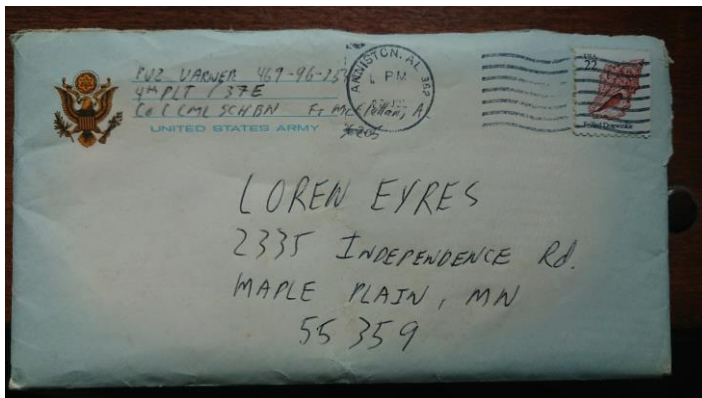 PV2 VARNER
4TH PLT / 37E
Co C CML SCH BN Ft McClellan, A
UNITED STATES ARMY
36205
ANNISTON, AL 362
PM
USA
22
Frilled Dogwinkle
LOREN EYRES
2335 INDEPENDENCE Rd.
MAPLE PLAIN, MN
55359